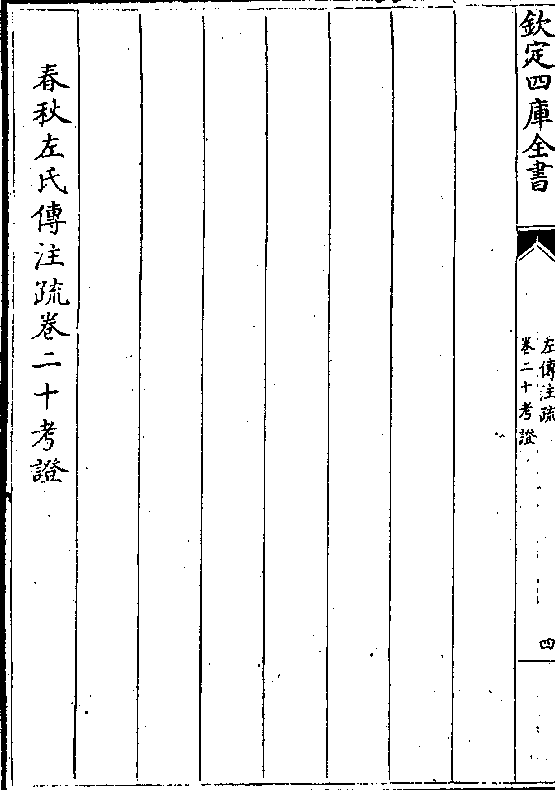 欽定四庫全書
左傳注疏
卷二十考證
四
春秋左氏傳注疏卷二十考證